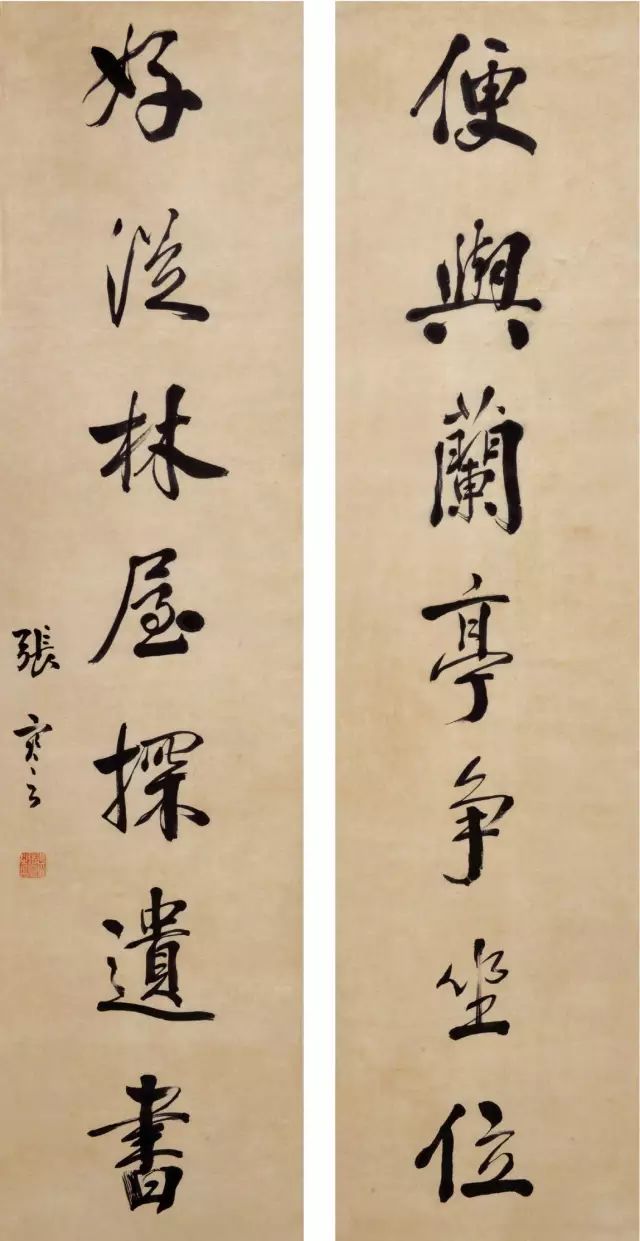 便與蘭亭争坐位
好從林屋探遺書
張